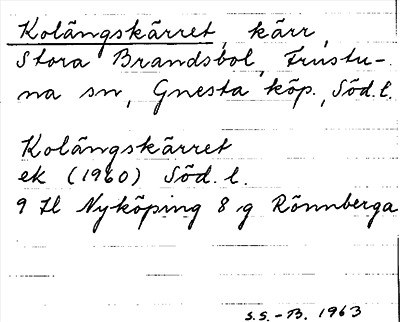 Kolängskärret, kärr,
Stora Brandsbol, Frustu-
na sn, Gnesta köp., Söd. l.
Kolängskärret
ek (1960) Söd. l.
9 H Nyköping 8 g Rönnberga
S.S.-B. 1963